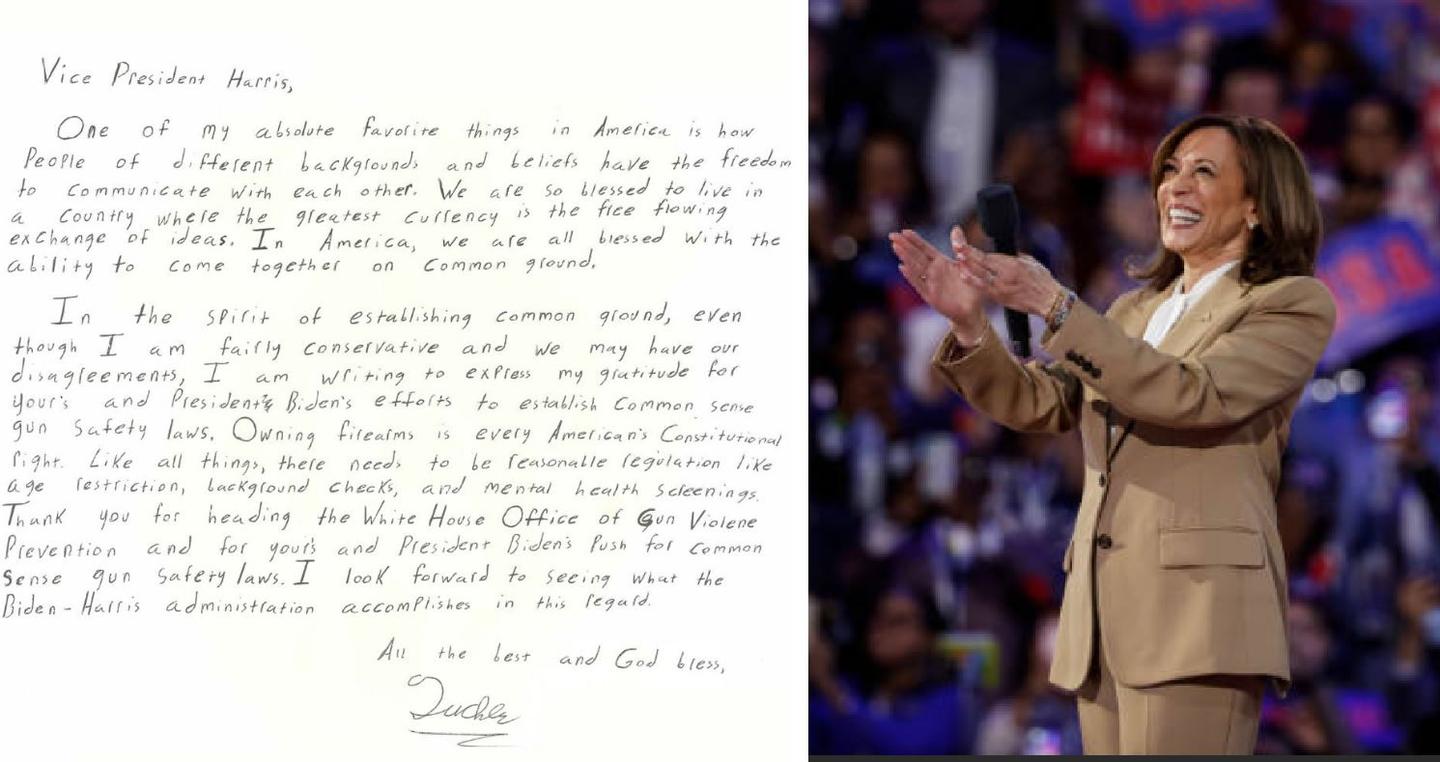 Vice President Harris,
One of my absolute favorite things in America is how
People of different backgrounds and beliefs have the freedom
to communicate with each other. We are so blessed to live in
a country where the greatest currency is the free flowing
exchange of ideas. In America, we are all blessed with the
ability to come together on common ground.
In the spirit of establishing common ground, even
though I am fairly conservative and we may have our
disagreements, I am writing to express my gratitude for
your's and President's Biden's efforts to establish common sense
gun safety laws. Owning firearms is every American's Constitutional
right. Like all things, there needs to be reasonable regulation like
age restriction, background checks, and mental health screenings.
Thank you for heading the White House Office of Gun Violene
Prevention and for your's and President Biden's Push for common
sense gun safety laws. I look forward to seeing what the
Biden-Harris administration accomplishes in this regard.
All the best and God bless,
USA